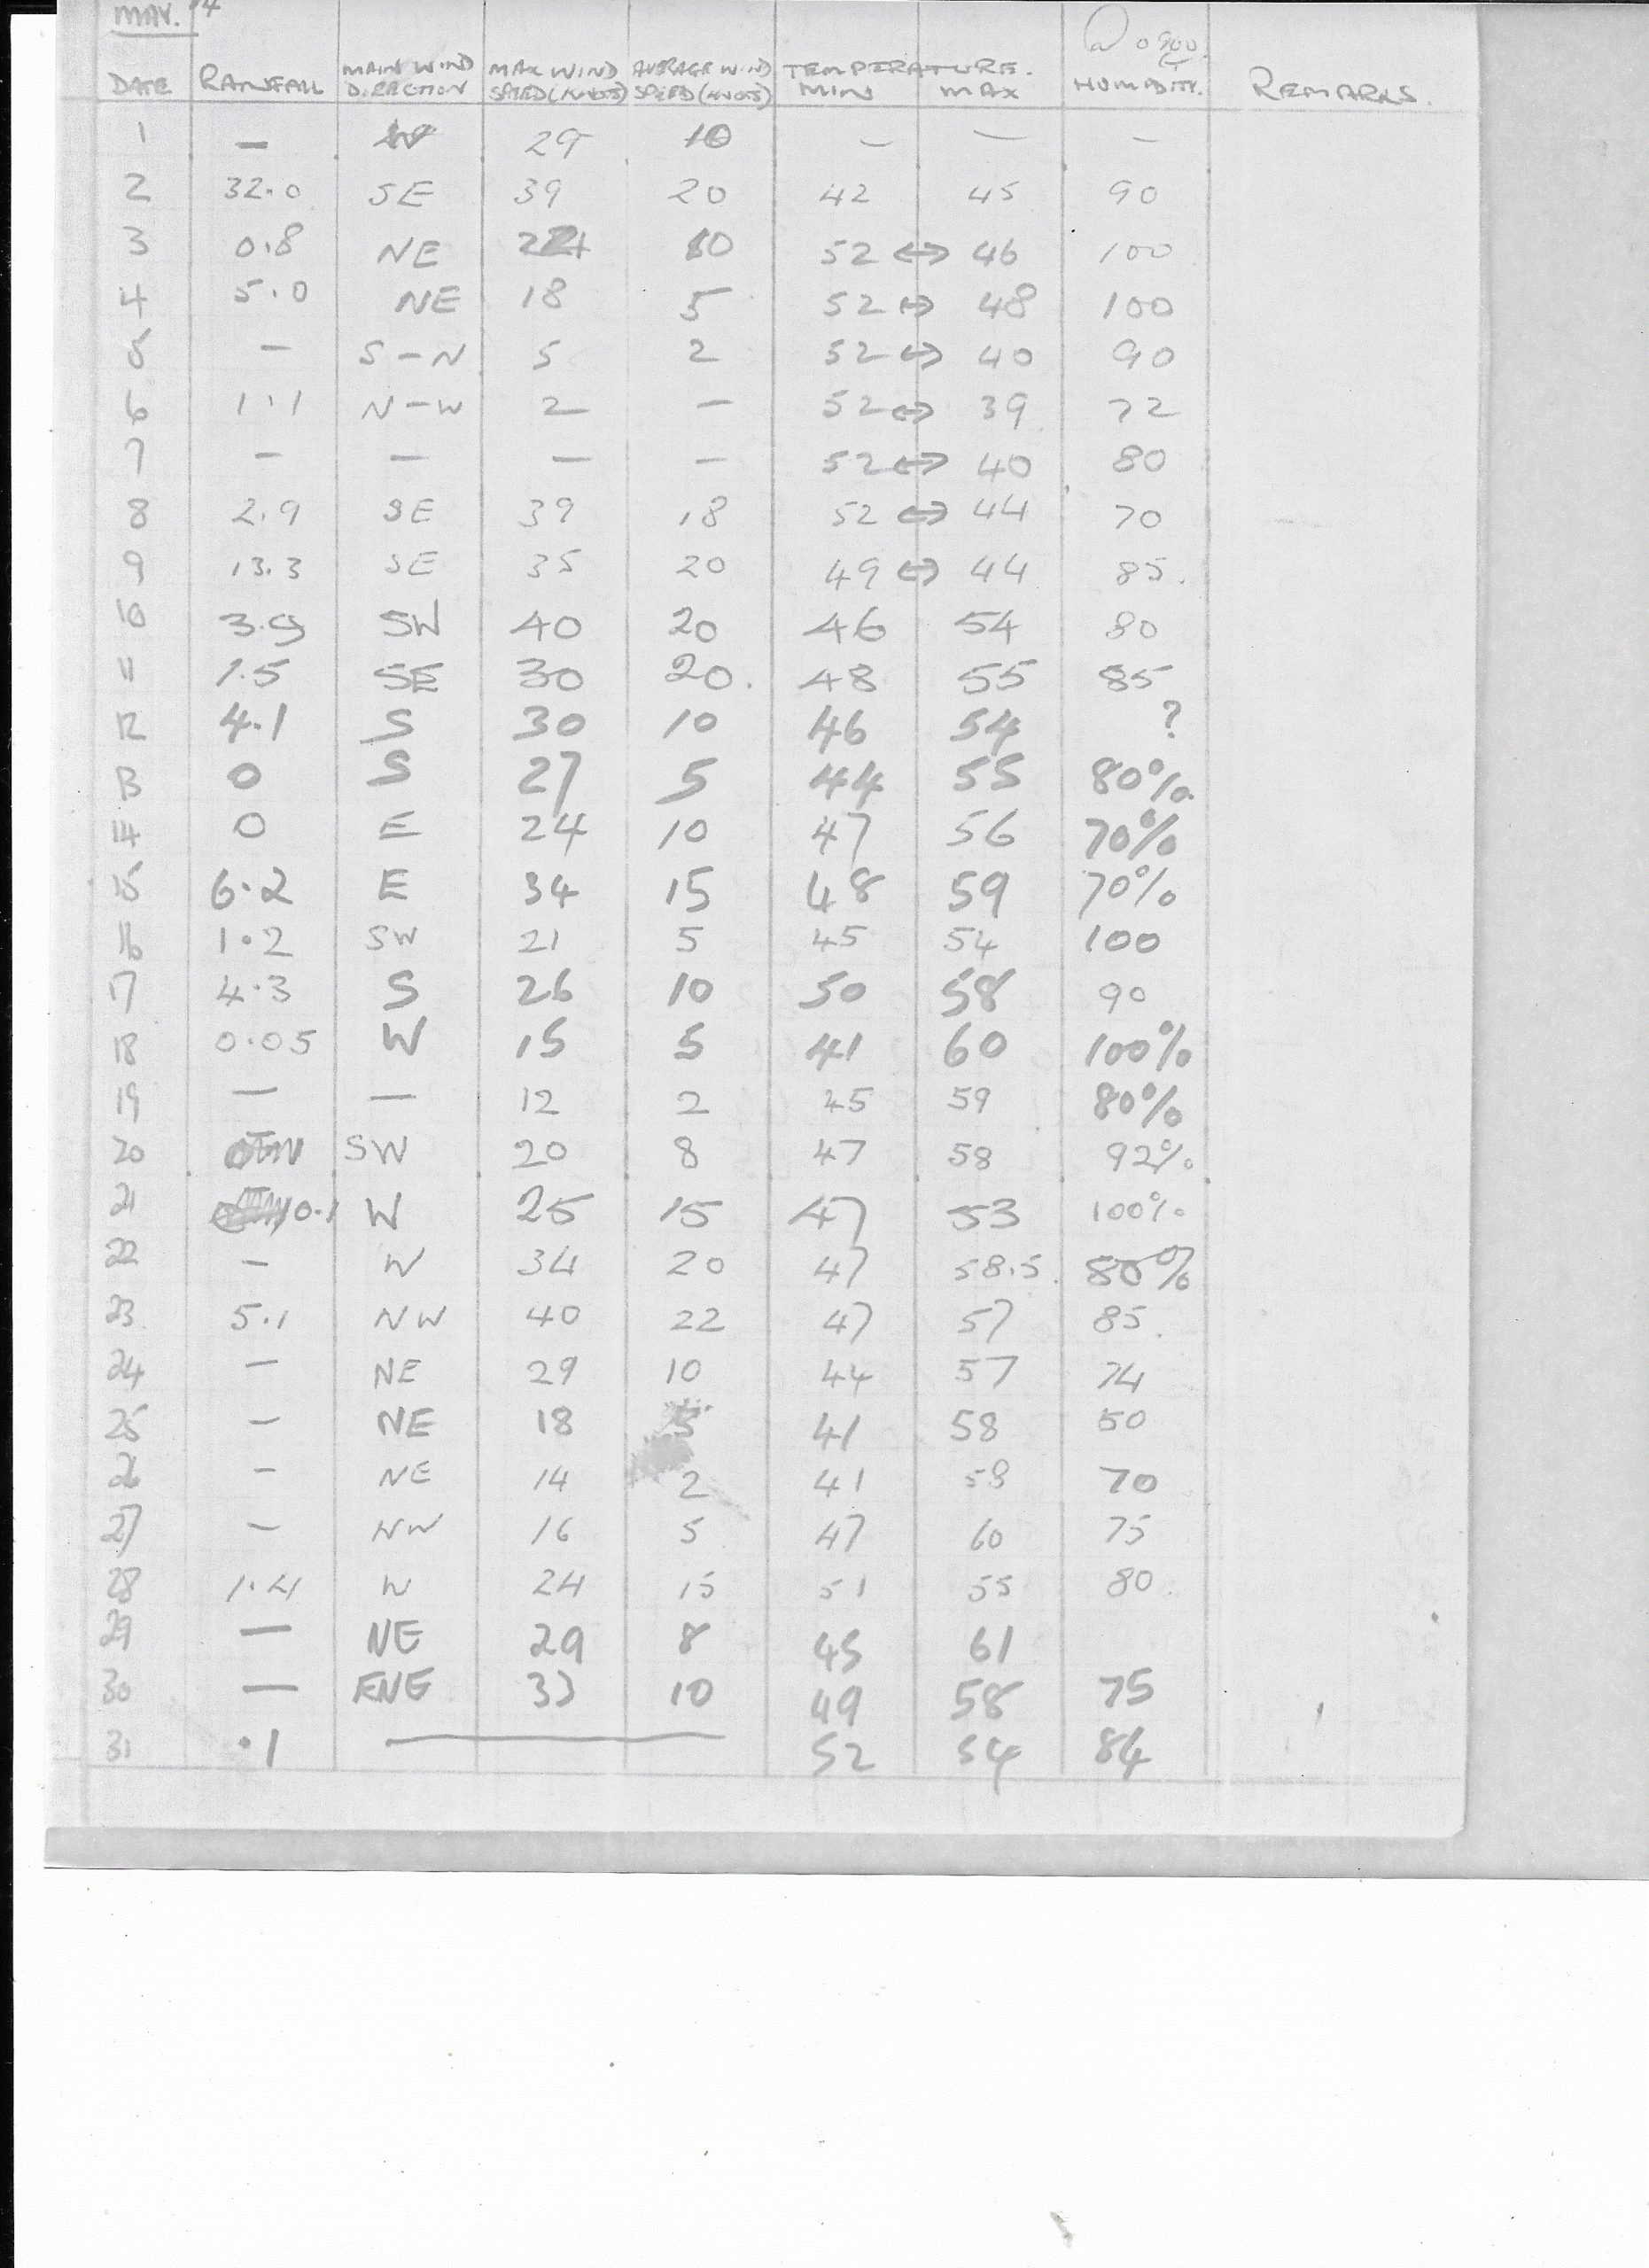 MAY. 
@ 0900.
DATE RANFALL MAIN WIND DIRECTION MAX WIND SPEED (KNOTS) AVERAGE WIND SPEED (KNOTS) TEMPERATURE. MIN MAX HUMIDITY. REMARKS.
1 — W 29 10 — — —
2 32.0 SE 39 20 42 45 90
3 0.8 NE 10 52 ↔ 46 100
4 5.0 NE 18 5 52 ↔ 48 100
5 — S-N 5 2 52 ↔ 40 90
6 1.1 N-W 2 — 52 ↔ 39 72
7 — — — — 52 ↔ 40 80
8 2.9 SE 39 18 52 ↔ 44 70
9 13.3 SE 35 20 49 ↔ 44 85.
10 3.9 SW 40 20 46 54 80
11 1.5 SE 30 20. 48 55 85
12 4.1 S 30 10 46 54 ?
13 0 S 27 5 44 55 80%.
14 0 E 24 10 47 56 70%
15 6.2 E 34 15 48 59 70%
16 1.2 SW 21 5 45 54 100
17 4.3 S 26 10 50 58 90
18 0.05 W 15 5 41 60 100%
19 — — 12 2 45 59 80%
20 SW 20 8 47 58 92%
21 0.1 W 25 15 47 53 100%
22 — W 34 20 47 58.5. 80%
23 5.1 NW 40 22 47 57 85.
24 — NE 29 10 44 57 74
25 — NE 18 5 41 58 50
26 — NE 14 2 41 58 70
27 — NW 16 5 47 60 75
28 1.4 W 24 15 51 55 80.
29 — NE 29 8 45 61
30 — ENE 33 10 49 58 75
31 .1 — 52 54 84